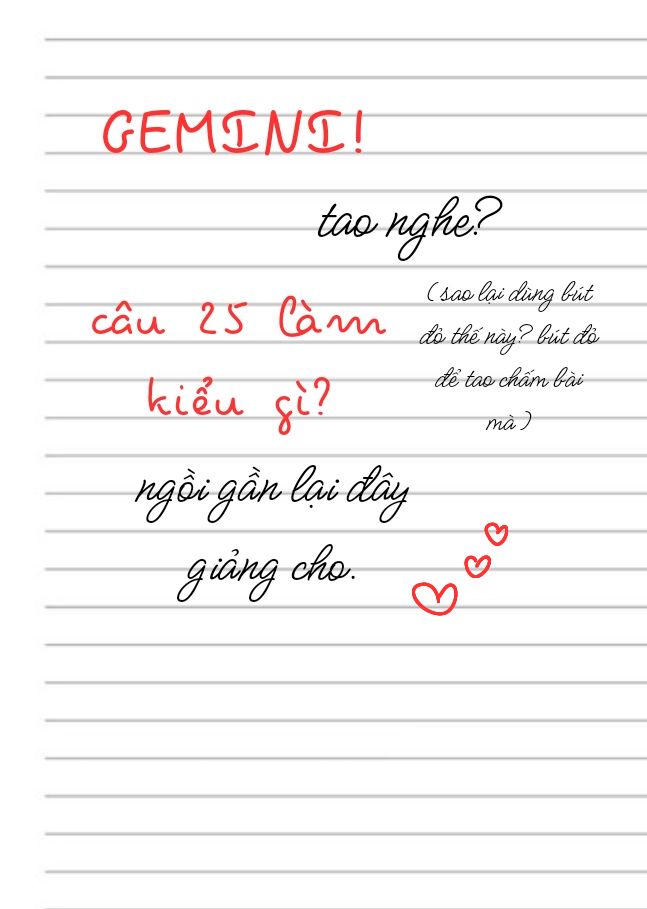 GEMINI!
tao nghe?
câu 25 làm
kiểu gì?
(sao lại dùng bút
đỏ thế này? bút đỏ
để tao chấm bài
mà)
ngồi gần lại đây
giảng cho.